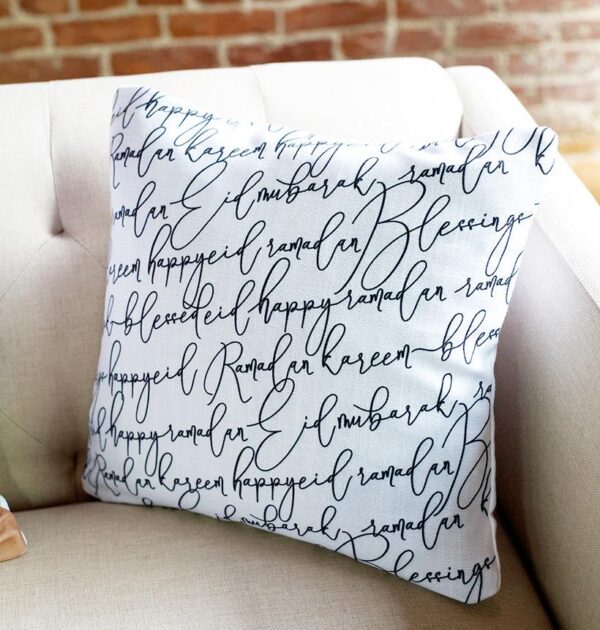 happy
Ramadan kareem happy
ramadan Eid mubarak ramadan
kareem happy eid ramadan Blessings
blessed eid happy ramadan ramad
happy eid Ramadan kareem bless
happy ramadan Eid mubarak ra
Ramadan kareem happy eid ramadan B
mubarak ramadan
Blessings